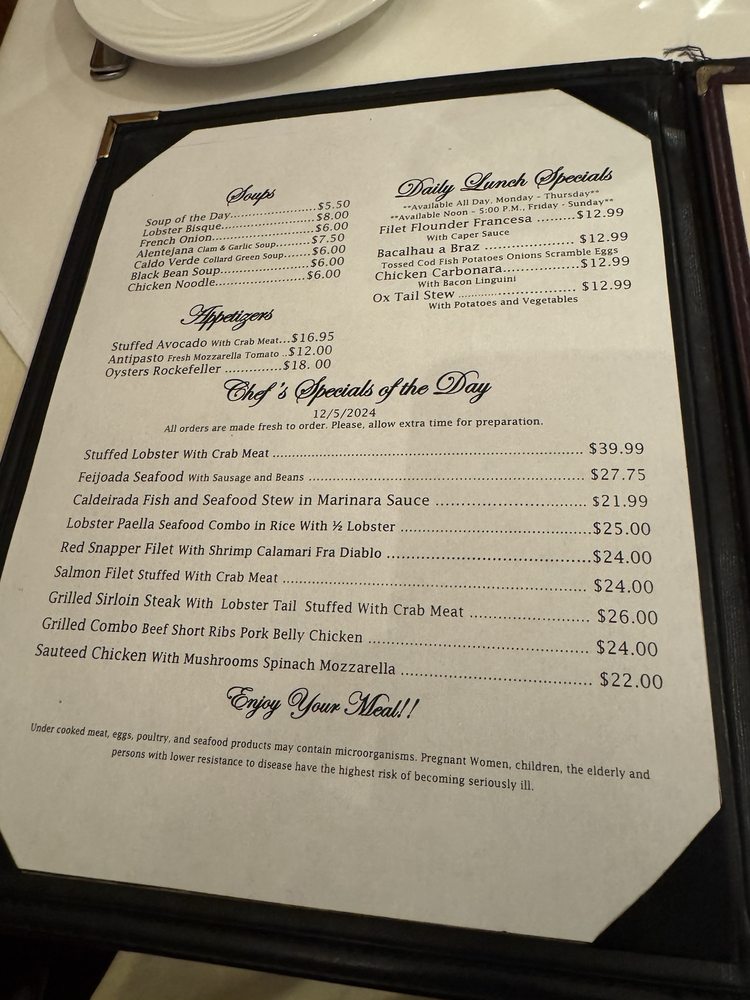 Soups
Soup of the Day..................$5.50
Lobster Bisque...................$8.00
French Onion.....................$6.00
Alentejana Clam & Garlic Soup........$7.50
Caldo Verde Collard Green Soup.....$6.00
Black Bean Soup..................$6.00
Chicken Noodle...................$6.00
Appetizers
Stuffed Avocado With Crab Meat...$16.95
Antipasto Fresh Mozzarella Tomato ..$12.00
Oysters Rockefeller .............$18. 00
Daily Lunch Specials
**Available All Day, Monday - Thursday**
**Available Noon - 5:00 P.M., Friday - Sunday**
Filet Flounder Francesa .........$12.99
With Caper Sauce
Bacalhau a Braz ..................... $12.99
Tossed Cod Fish Potatoes Onions Scramble Eggs
Chicken Carbonara..................$12.99
With Bacon Linguini
Ox Tail Stew ............................ $12.99
With Potatoes and Vegetables
Chef's Specials of the Day
12/5/2024
All orders are made fresh to order. Please, allow extra time for preparation.
Stuffed Lobster With Crab Meat ........................................................... $39.99
Feijoada Seafood With Sausage and Beans ..................................................... $27.75
Caldeirada Fish and Seafood Stew in Marinara Sauce ............................. $21.99
Lobster Paella Seafood Combo in Rice With ½ Lobster .....................................$25.00
Red Snapper Filet With Shrimp Calamari Fra Diablo .......................................$24.00
Salmon Filet Stuffed With Crab Meat .......................................................... $24.00
Grilled Sirloin Steak With Lobster Tail Stuffed With Crab Meat ....................... $26.00
Grilled Combo Beef Short Ribs Pork Belly Chicken ........................................... $24.00
Sauteed Chicken With Mushrooms Spinach Mozzarella ..................................... $22.00
Enjoy Your Meal!!
Under cooked meat, eggs, poultry, and seafood products may contain microorganisms. Pregnant Women, children, the elderly and
persons with lower resistance to disease have the highest risk of becoming seriously ill.